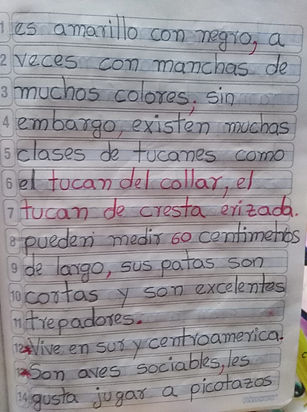 1 es amarillo con negro, a
2 veces con manchas de
3 muchos colores, sin
4 embargo, existen muchas
5 clases de tucanes como
6 el tucan del collar, el
7 tucan de cresta erizada.
8 pueden medir 60 centimetros
9 de largo, sus patas son
10 cortas y son excelentes
11 trepadores.
12 *Vive en sur y centroamerica.
13 *Son aves sociables, les
14 gusta jugar a picotazos